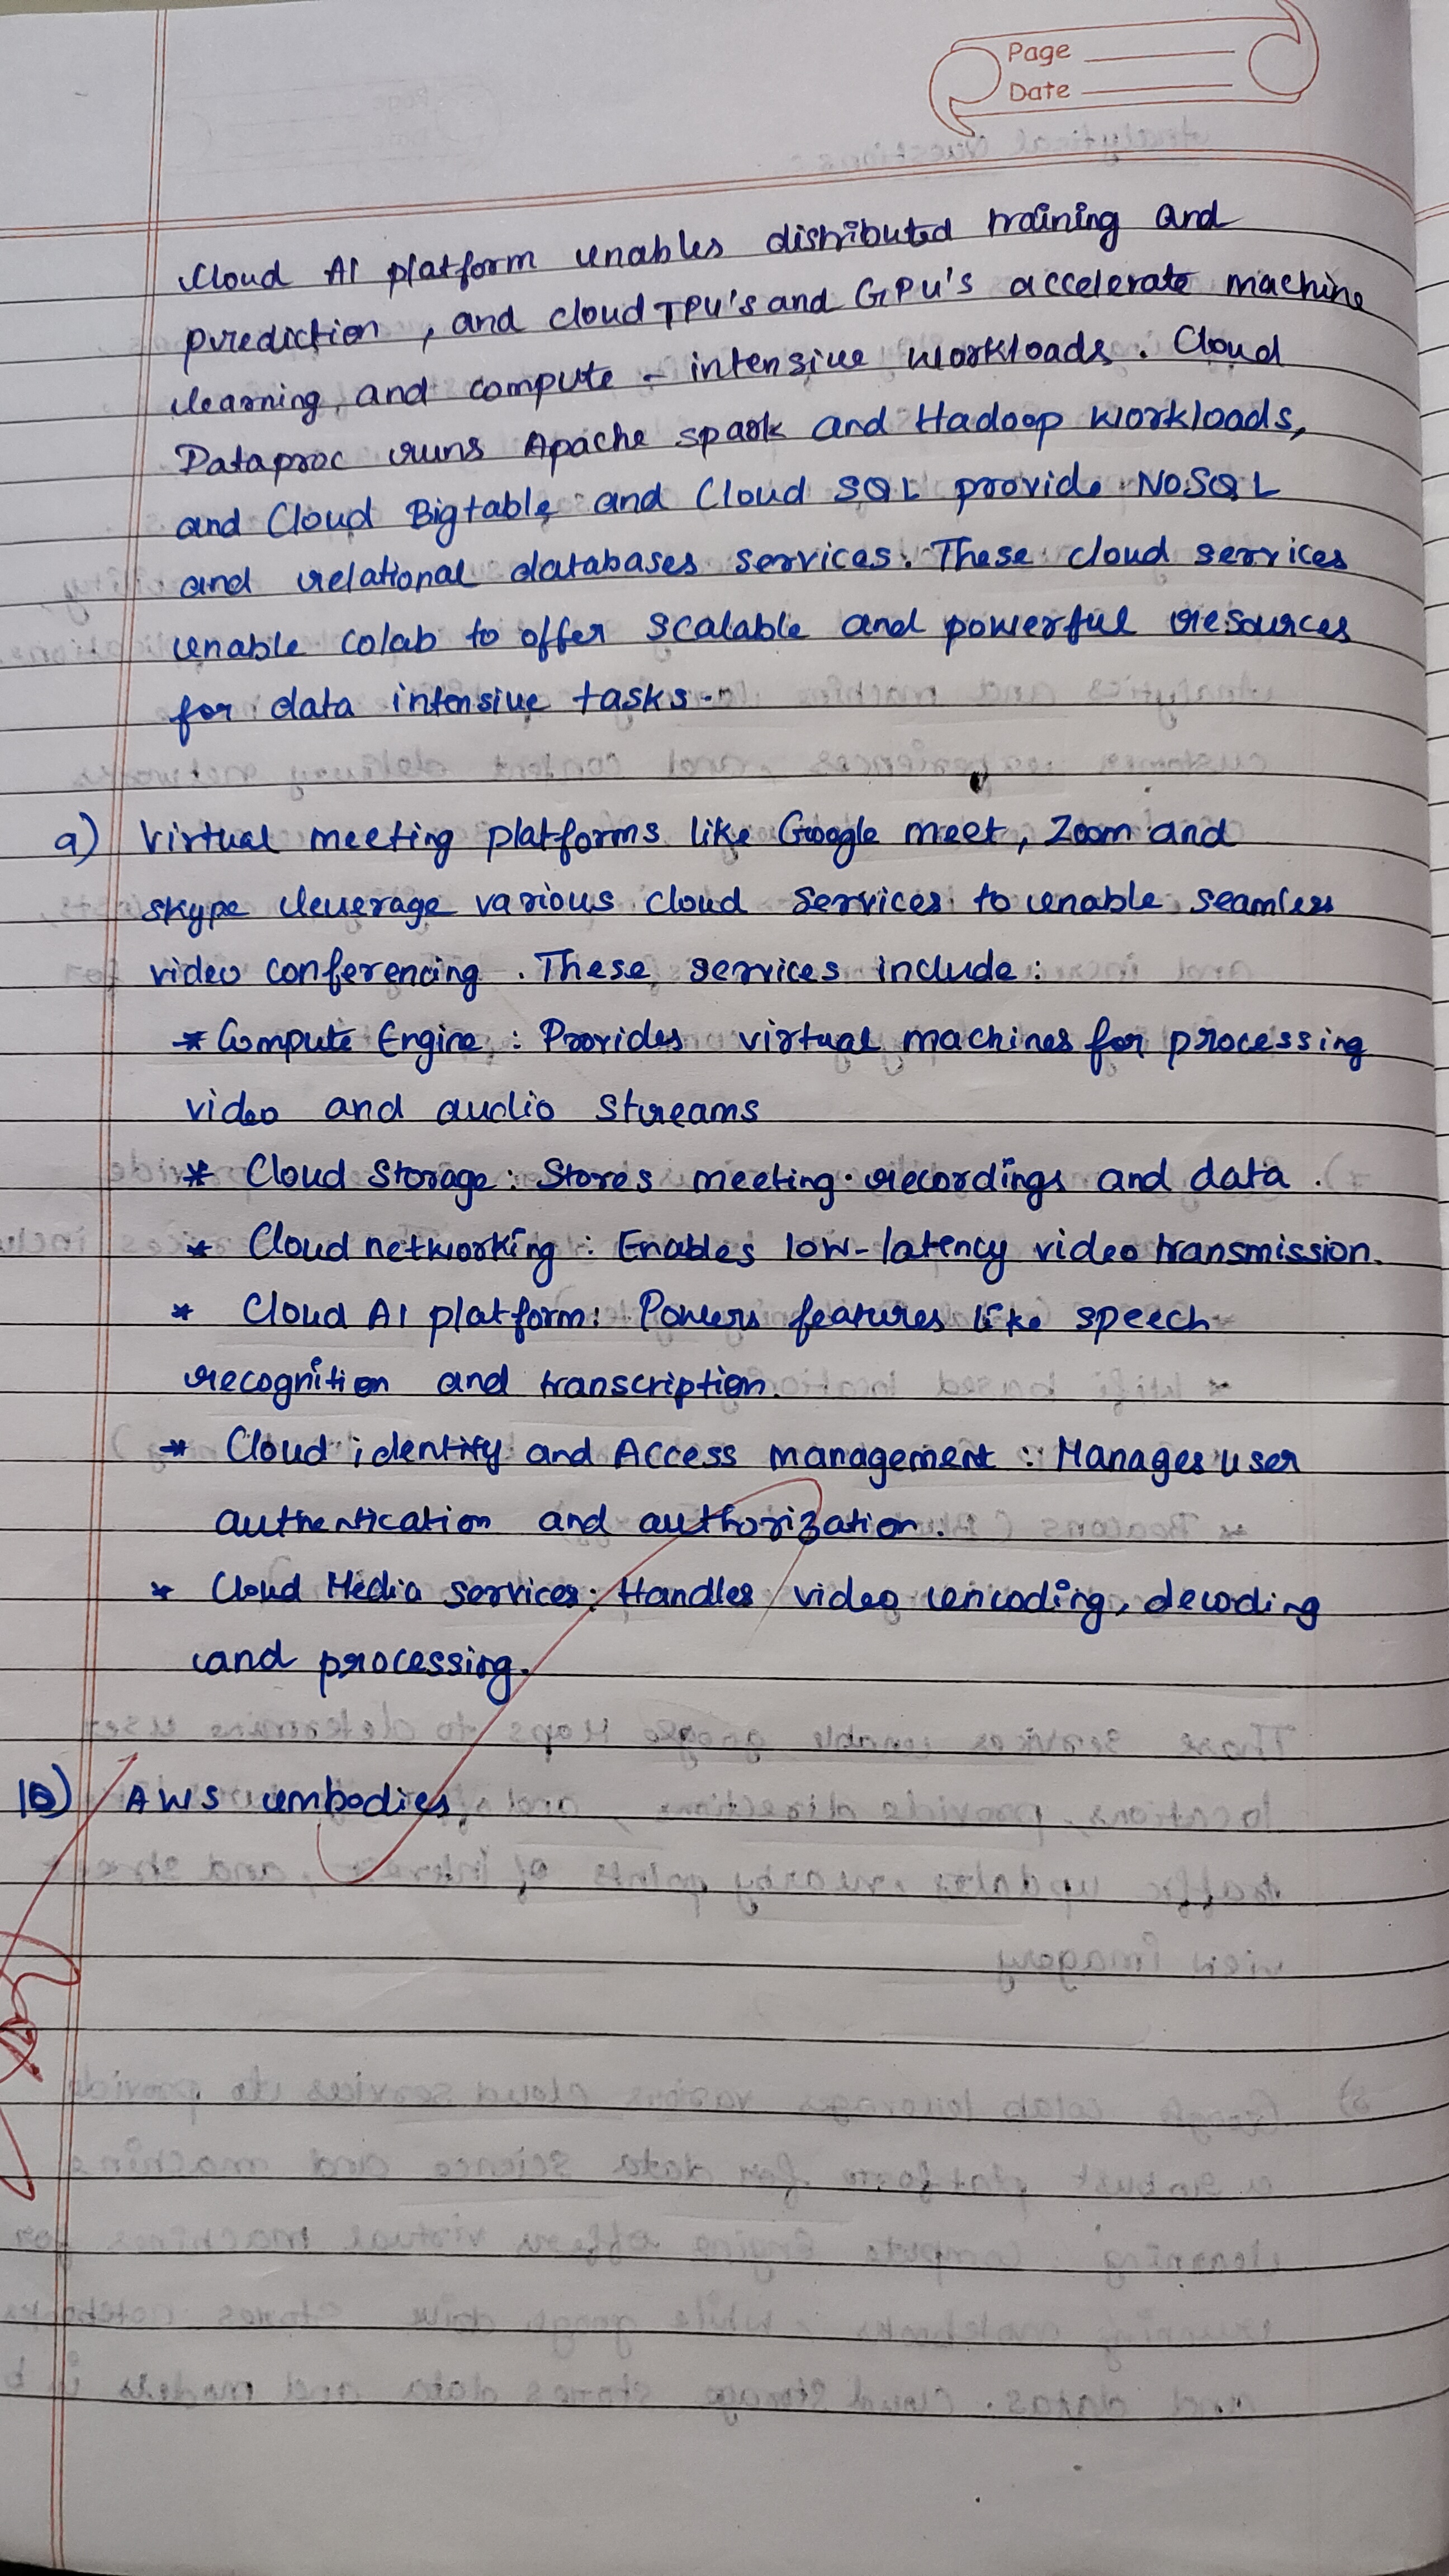 Page
Date
Cloud AI platform enables distributed training and
prediction, and cloud TPU's and GPU's accelerate machine
learning and compute - intensive workloads. Cloud
Dataproc runs Apache spark and Hadoop workloads,
and Cloud Bigtable and Cloud SQL provide NoSQL
and relational databases services. These cloud services
enable colab to offer scalable and powerful resources
for data intensive tasks.
9) Virtual meeting platforms like Google meet, Zoom and
skype leverage various cloud services to enable seamless
video conferencing. These services include:
* Compute Engine: Provides virtual machines for processing
video and audio streams
* Cloud Storage: Stores meeting recordings and data.
* Cloud networking: Enables low-latency video transmission.
* Cloud AI platform: Powers features like speech
recognition and transcription.
* Cloud identity and Access management: Manages user
authentication and authorization.
* Cloud Media services: Handles video encoding, decoding
and processing.
10) AWS embodies